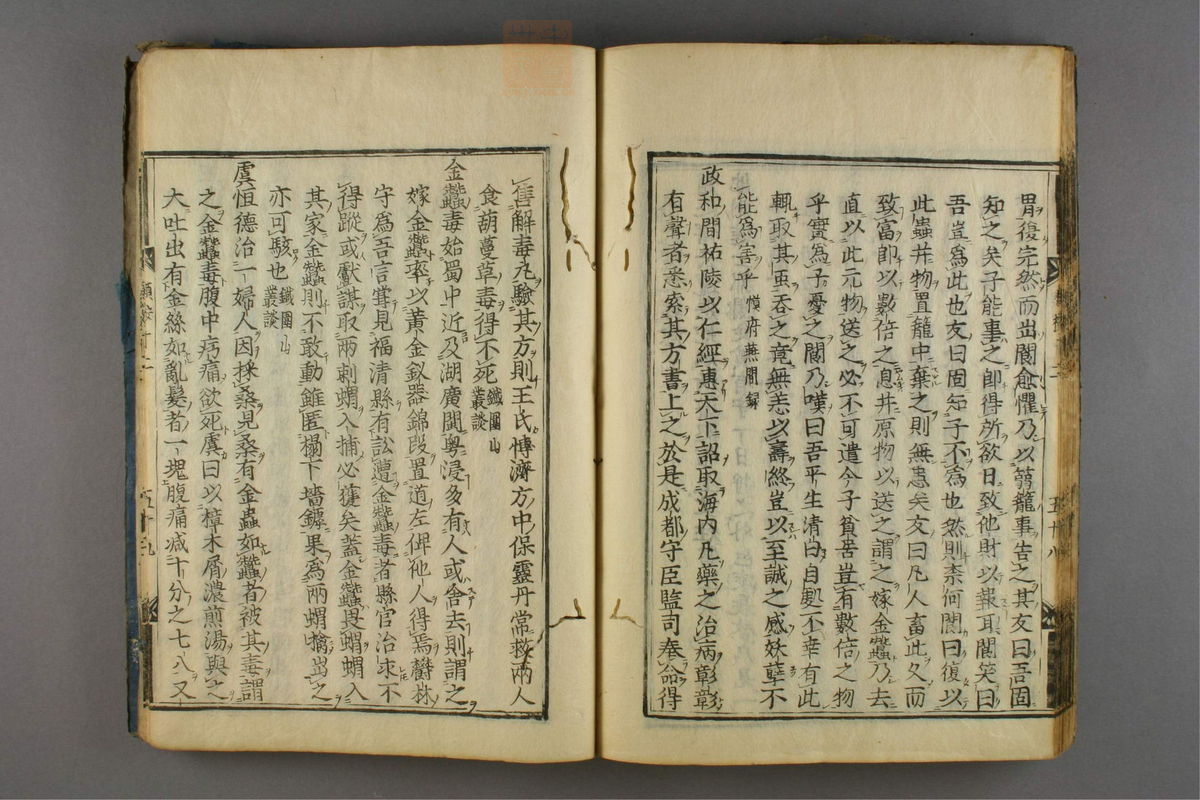 胃復完然而出閽愈懼乃以篛籠事告之其友曰吾固
知之矣子能事之即得所欲日致他財以報耳閽笑曰
吾豈爲此也友曰固知子不爲也然則柰何閽曰復以
此蟲并物置籠中棄之則無患矣友曰凡人畜此久而
致富即以數倍之息并原物以送之謂之嫁金蠶乃去
直以此元物送之必不可遣今子貧居豈有數倍之物
乎實爲子憂之閽乃嘆曰吾平生清白自處不幸有此
輒取其虫吞之竟無恙以壽終豈以至誠之感妖孽不
能爲害乎 幙府燕閒錄
政和間祐陵以仁經惠天下詔取海内凡藥之治病彰彰
有聲者悉索其方書上之於是成都守臣監司奉命得
售解毒丸驗其方則王氏博濟方中保靈丹常救兩人
食葫蔓草毒得不死 鐵圍山叢談
金蠶毒始蜀中近及湖廣閩粤浸多有人或舍去則謂之
嫁金蠶率以黃金釵器錦段置道左俾他人得焉欝林
守爲吾言嘗見福清縣有訟遭金蠶毒者縣官治求不
得蹤或獻謀取兩刺蝟入捕必獲矣蓋金蠶畏蝟蝟入
其家金蠶則不敢動雖匿榻下墻罅果爲兩蝟擒出之
亦可駭也 鐵圍山叢談
虞恒德治一婦人因採桑見桑有金蟲如蠶者被其毒謂
之金蠶毒腹中㽲痛欲死虞曰以樟木屑濃煎湯與之
大吐出有金絲如亂髮者一塊腹痛减十分之七八又
五十八
五十九